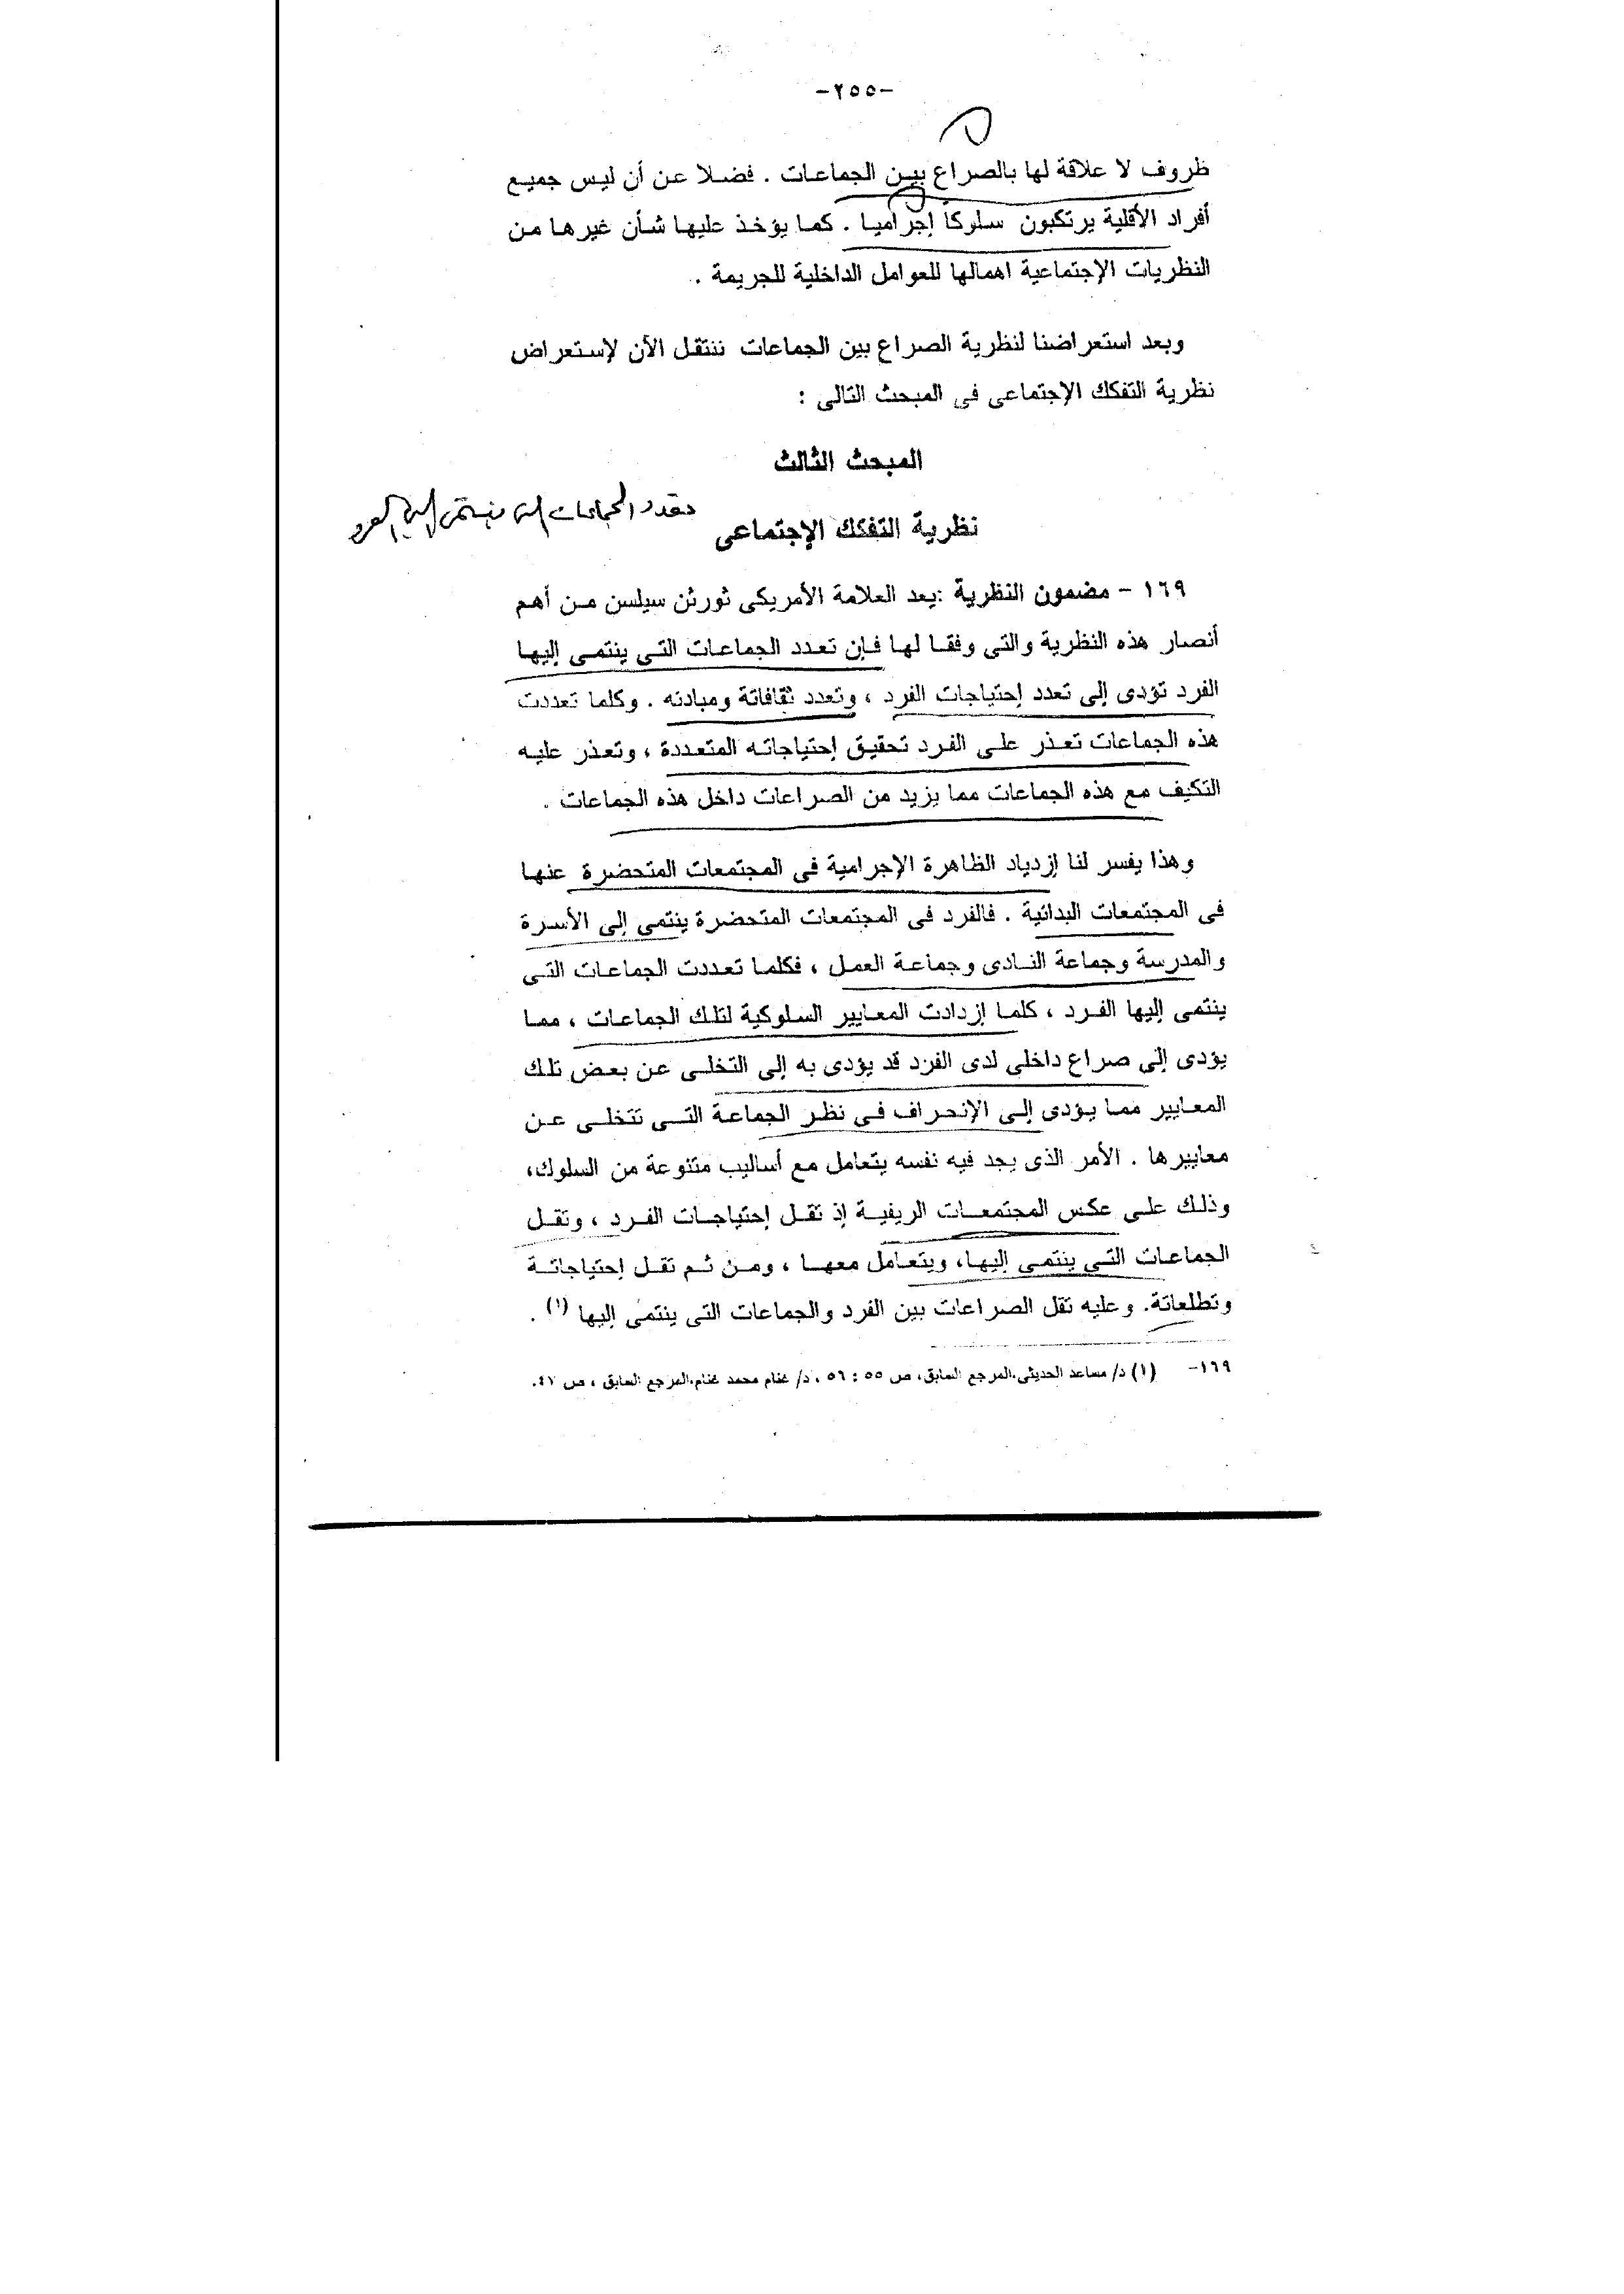 -٢٥٥-
ظروف لا علاقة لها بالصراع بين الجماعات . فضلا عن أن ليس جميع
أفراد الأقلية يرتكبون سلوكا إجراميا . كما يؤخذ عليها شأن غيرها من
النظريات الإجتماعية اهمالها للعوامل الداخلية للجريمة .
وبعد استعراضنا لنظرية الصراع بين الجماعات ننتقل الآن لإستعراض
نظرية التفكك الإجتماعى فى المبحث التالى :
المبحث الثالث
تعدد الجماعات التى ينتمى إليها الفرد
نظرية التفكك الإجتماعى
١٦٩ - مضمون النظرية :يعد العلامة الأمريكى ثورثن سيلسن من أهم
أنصار هذه النظرية والتى وفقا لها فإن تعدد الجماعات التى ينتمى إليها
الفرد تؤدى إلى تعدد إحتياجات الفرد ، وتعدد ثقافاتة ومبادئه . وكلما تعددت
هذه الجماعات تعذر على الفرد تحقيق إحتياجاته المتعددة ، وتعذر عليه
التكيف مع هذه الجماعات مما يزيد من الصراعات داخل هذه الجماعات .
وهذا يفسر لنا إزدياد الظاهرة الإجرامية فى المجتمعات المتحضرة عنها
فى المجتمعات البدائية . فالفرد فى المجتمعات المتحضرة ينتمى إلى الأسرة
والمدرسة وجماعة النادى وجماعة العمل ، فكلما تعددت الجماعات التى
ينتمى إليها الفرد ، كلما إزدادت المعايير السلوكية لتلك الجماعات ، مما
يؤدى إلى صراع داخلى لدى الفرد قد يؤدى به إلى التخلى عن بعض تلك
المعايير مما يؤدى إلى الإنحراف فى نظر الجماعة التى تتخلى عن
معاييرها . الأمر الذى يجد فيه نفسه يتعامل مع أساليب متنوعة من السلوك،
وذلك على عكس المجتمعات الريفية إذ تقل إحتياجات الفرد ، وتقل
الجماعات التى ينتمى إليها، ويتعامل معها ، ومن ثم تقل إحتياجاتة
وتطلعاتة. وعليه تقل الصراعات بين الفرد والجماعات التى ينتمى إليها (١) .
١٦٩- (١) د/ مساعد الحديثى،المرجع السابق، ص ٥٥ : ٥٦ ، د/ غنام محمد غنام،المرجع السابق ، ص ٤٧.